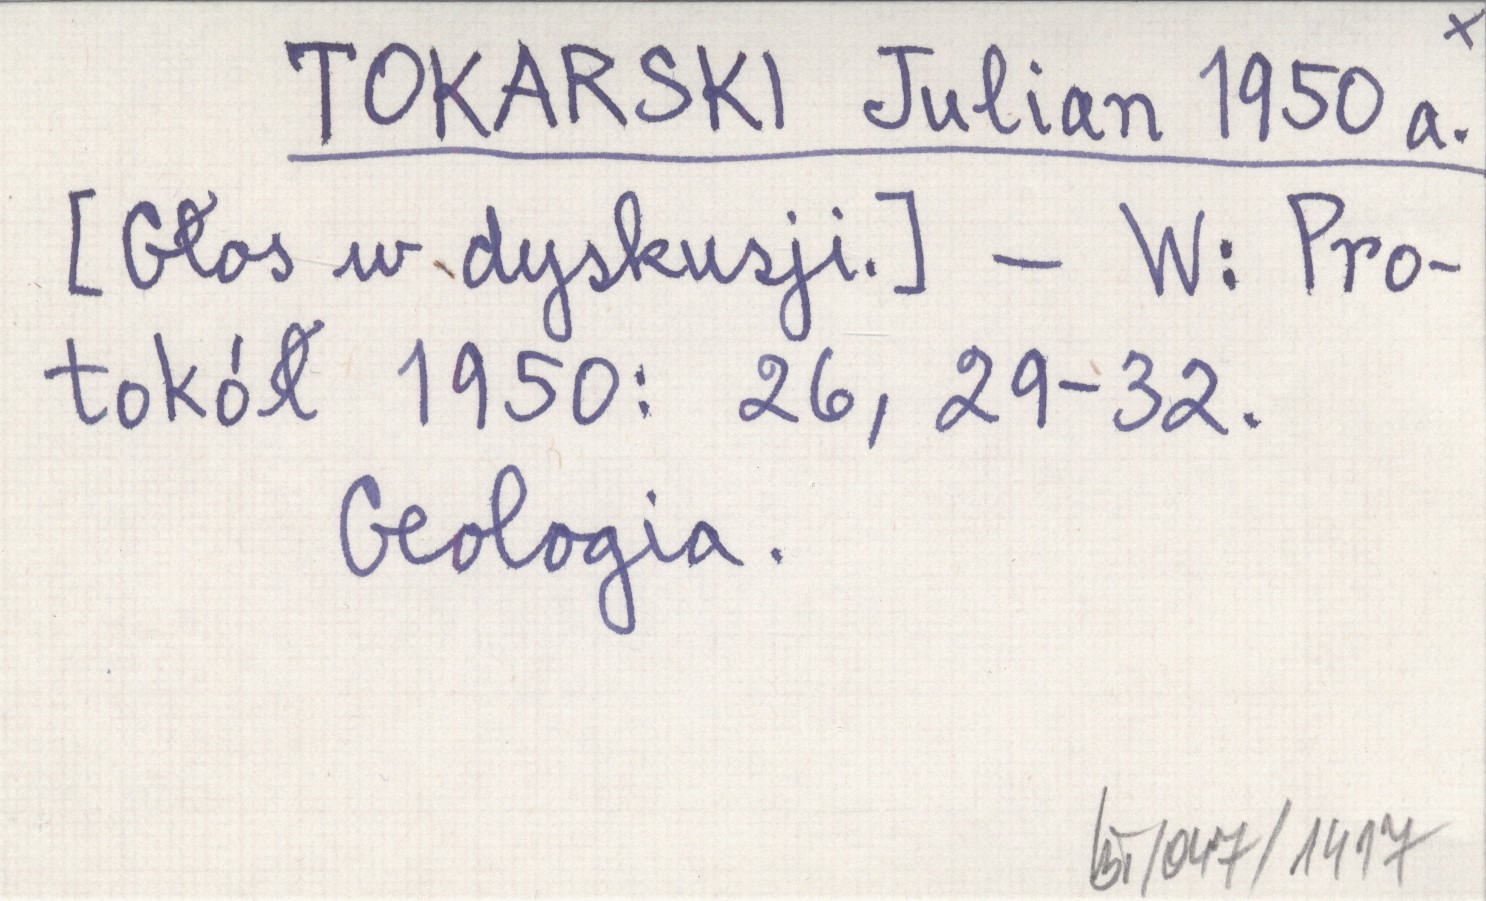 x
TOKARSKI Julian 1950 a.
[Głos w dyskusji.] — W: Pro-
tokół 1950: 26, 29-32.
Geologia.
/047/1417